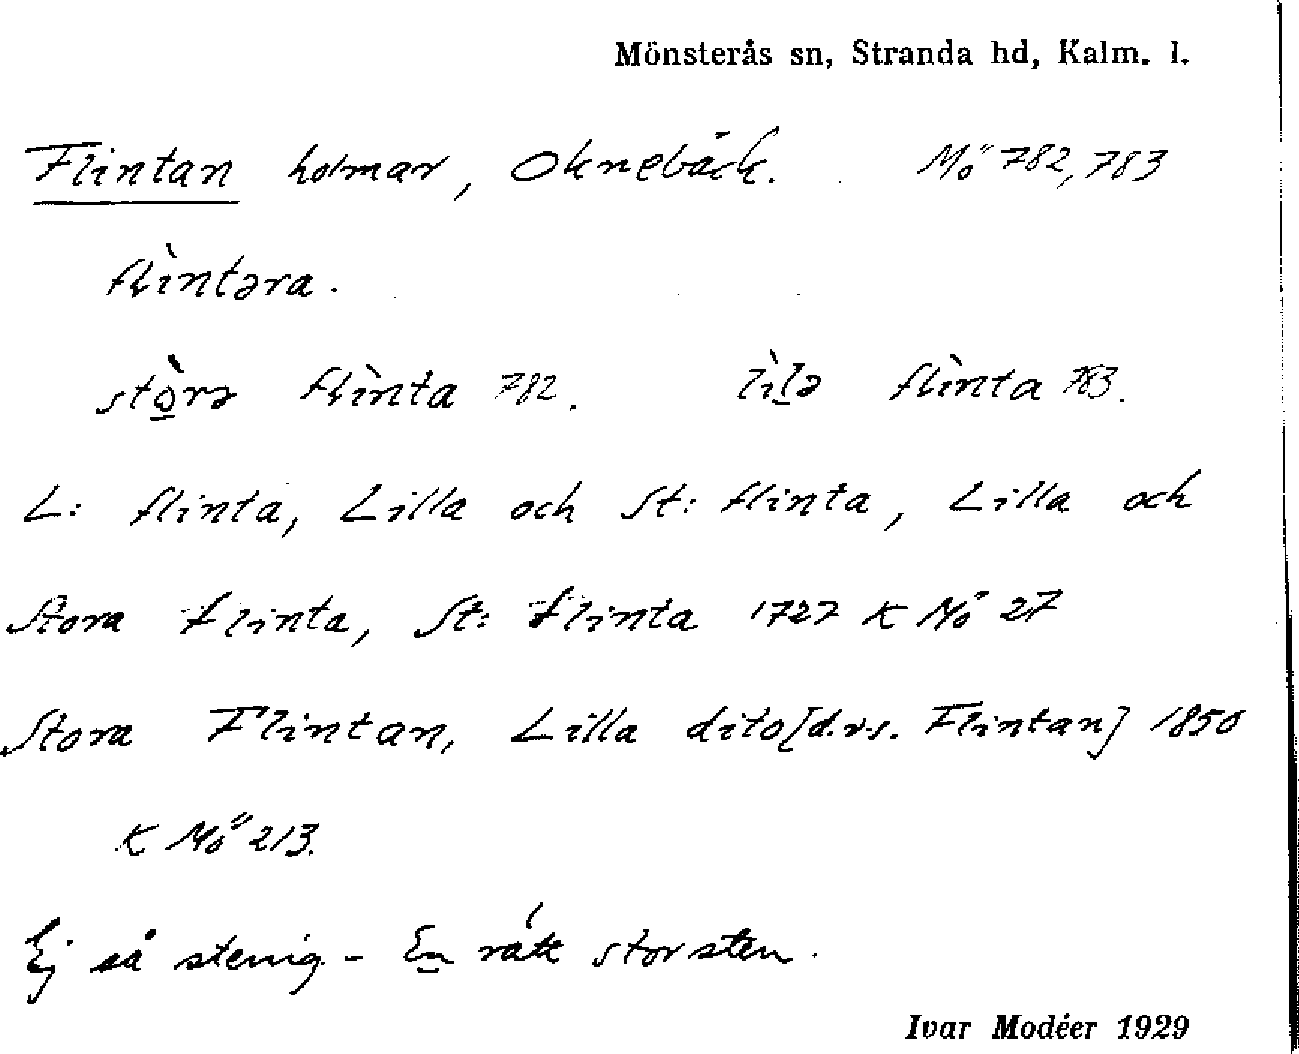 Mönsterås sn, Stranda hd, Kalm. l.
Flintan holmar, Oknebäck. Mö 782, 783
flìntəra.
stò̲rə flìnta 782. lìl̲ə flìnta 783.
L: flinta, Lilla och St: flinta, Lilla och
Stora Flinta, St: Flinta 1727 K Mö 27
Stora Flintan, Lilla dito [d.v.s. Flintan] 1850
K Mö 213.
Ej så stenig - En rätt stor sten.
Ivar Modéer 1929